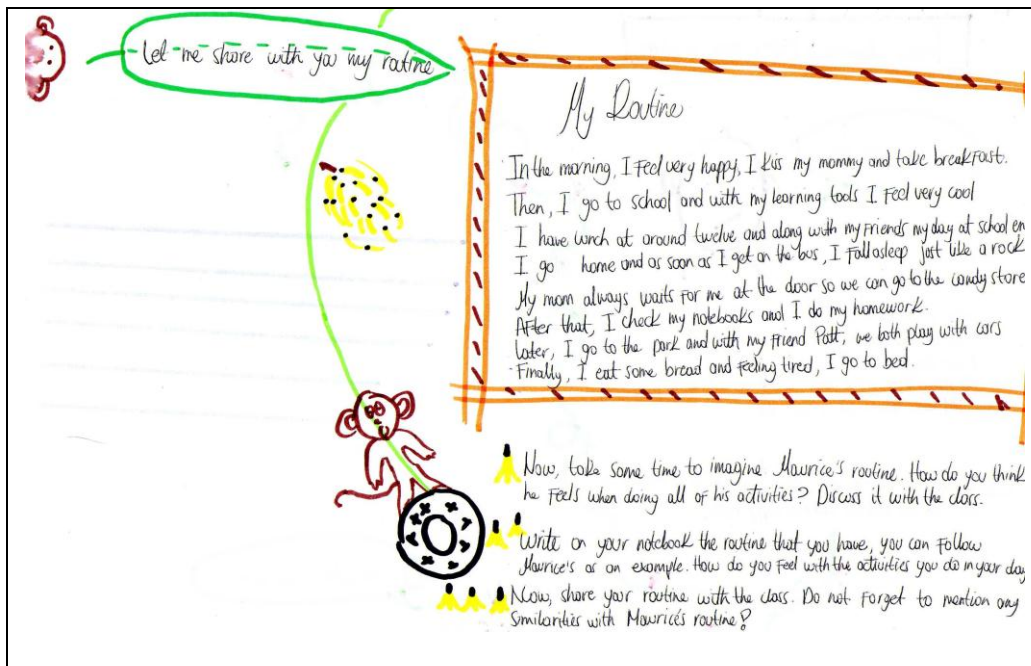 Let me share with you my routine
My Routine
In the morning, I feel very happy, I kiss my mommy and take breakfast.
Then, I go to school and with my learning tools I feel very cool
I have lunch at around twelve and along with my friends my day at school en
I go home and as soon as I get on the bus, I fall asleep just like a rock
My mom always waits for me at the door so we can go to the candy store
After that, I check my notebooks and I do my homework.
Later, I go to the park and with my friend Patt, we both play with cars
Finally, I eat some bread and feeling tired, I go to bed.
Now, take some time to imagine Maurice's routine. How do you think
he feels when doing all of his activities? Discuss it with the class.
Write on your notebook the routine that you have, you can follow
Maurice's as an example. How do you feel with the activities you do in your day
Now, share your routine with the class. Do not forget to mention any
similarities with Maurice's routine!